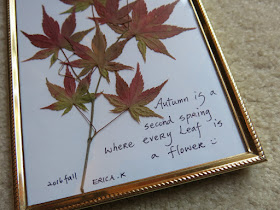 Autumn is a
second spring
where every leaf is
a flower
2016 fall
ERICA.K